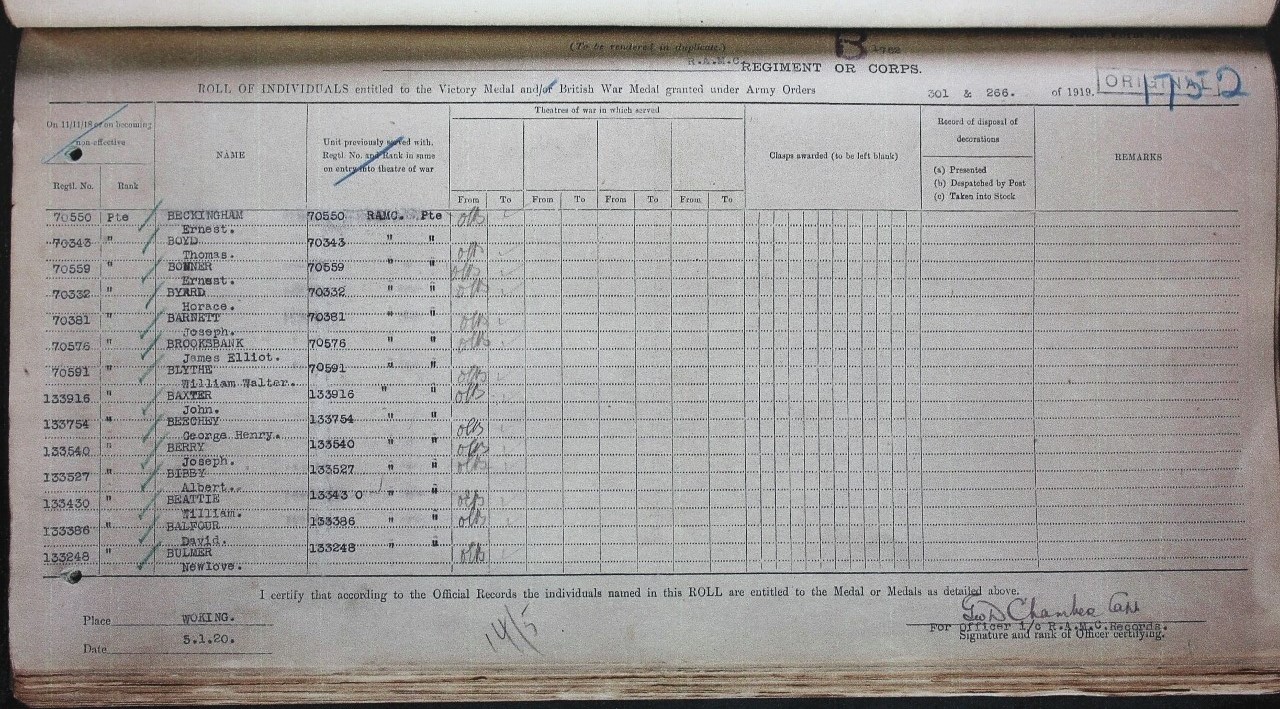 (To be rendered in duplicate.)
B 1752
R.A.M.C. REGIMENT OR CORPS.
ROLL OF INDIVIDUALS entitled to the Victory Medal and/or British War Medal granted under Army Orders 301 & 266. of 1919.
ORIGINAL
1752
On 11/11/18 or on becoming non-effective
Regtl. No. Rank
NAME
Unit previously served with. Regtl. No. and Rank in same on entry into theatre of war
Theatres of war in which served
From To From To From To From To
Clasps awarded (to be left blank)
Record of disposal of decorations
(a) Presented
(b) Despatched by Post
(c) Taken into Stock
REMARKS
70550 Pte BECKINGHAM 70550 RAMC. Pte
Ernest.
70343 " BOYD 70343 " "
Thomas.
70559 " BONNER 70559 " "
Ernest.
70332 " BYARD 70332 " "
Horace.
70381 " BARNETT 70381 " "
Joseph.
70576 " BROOKSBANK 70576 " "
James Elliot.
70591 " BLYTHE 70591 " "
William Walter.
133916 " BAXTER 133916 " "
John.
133754 " BEECHEY 133754 " "
George Henry.
133540 " BERRY 133540
Joseph.
133527 " BIBBY 133527 " "
Albert.
133430 " BEATTIE 13343 0 " "
William.
133386 " BALFOUR 133386 " "
David.
133248 " BULMER 133248 " "
Newlove.
I certify that according to the Official Records the individuals named in this ROLL are entitled to the Medal or Medals as detailed above.
Place WOKING.
Date 5.1.20.
14/5
For Officer i/c R.A.M.C. Records.
Signature and rank of Officer certifying.